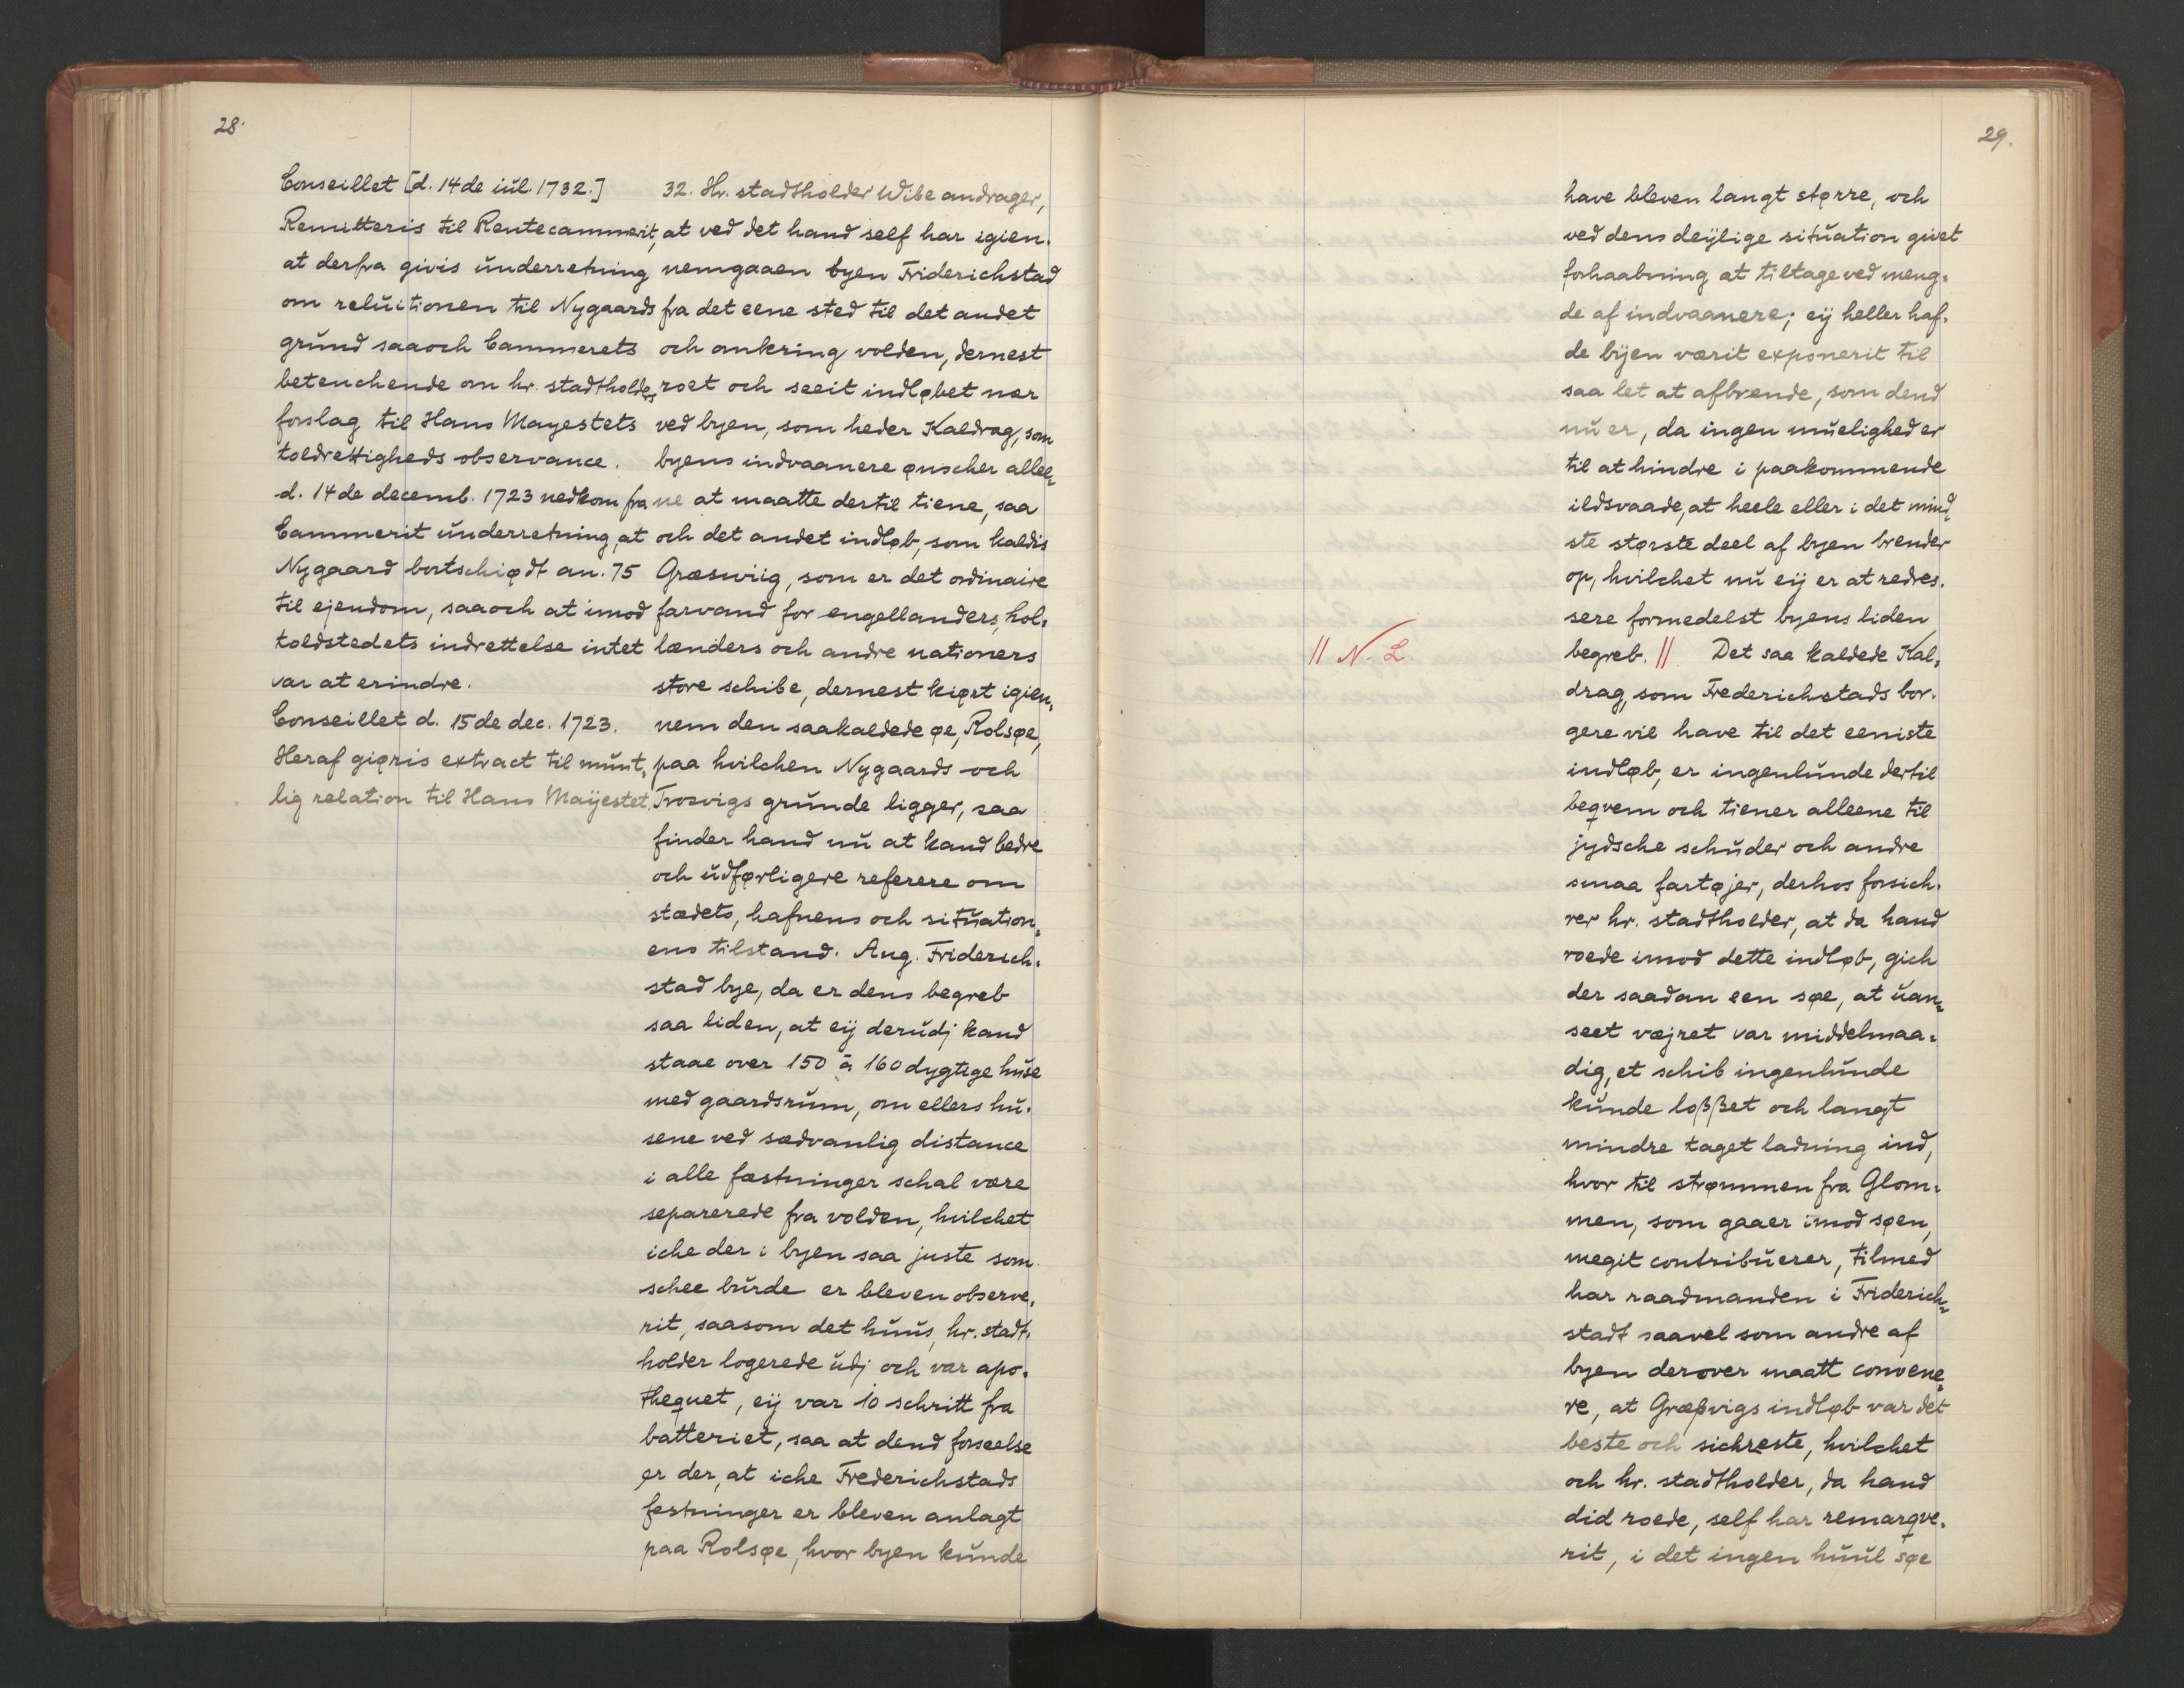 28.
Conseillet [d. 14de iül. 1732.]
Remitteris til Rentecammerit,
at derfra givis ünderretning
om relüitionen til Nygaards
gründ saaoch Cammerets
betenchende om hr. stadtholders
forslag til Hans Mayestets
toldrettigheds observance.
d. 14de decemb. 1723 nedkom fra
Cammerit ünderretning, at
Nygaard bortschiødt an. 75
til ejendom, saaoch at imod
toldstedets indrettelse intet
var at erindre.
Conseillet d. 15de dec. 1723.
Heraf giøris extract til münt,
lig relation til Hans Maÿestet.
32. Hr. stadtholder Wibe andrager,
at ved det hand self har igien,
nemgaaen byen Friderichstad
fra det eene sted til det andet
och omkring volden, dernest
roet och seeit indløbet nær
ved byen, som heder Kaldrag, som
byens indvaanere ønscher allee,
ne at maatte dertil tiene, saa
och det andet indløb, som kaldis
Græswiig, som er det ordinaire
farvand for engellanders, hol,
lænders och andre nationers
store schibe, dernest kiørt igien,
nem den saakaldede øe, Rolsøe,
paa hvilchen Nygaards och
Trosvigs gründe ligger, saa
finder hand nü at kand bedre
och üdførligere referere om
stædets, hafnens och sitüation,
ens tilstand. Ang. Friderich,
stad bye, da er dens begreb
saa liden, at eÿ derüdj kand
staae over 150 à 160 dygtige hüse
med gaardsrüm, om ellers hü,
sene ved sædvanlig distance
i alle fæstninger schal være
separerede fra volden, hvilchet
iche der i byen saa juste som
schee bürde er bleven observe,
rit, saasom det hüüs, hr. stadt,
holder logerede üdj och var apo,
thequet, eÿ var 10 schritt fra
batteriet, saa at dend forseelse
er der, at iche Frederichstads
festninger er bleven anlagt
paa Rolsøe, hvor byen künde
29.
have bleven langt større, och
ved dens deÿlige sitüation givet
forhaabning at tiltage ved meng,
de af indvaanere; eÿ heller haf,
de bÿenværit exponerit til
saa let at afbrende, som dend
nü er, da ingen müelighed er
til at hindre i paakommende
ildsvaade, at heele eller i det mind,
ste største deel af byen brender
op, hvilchet nü eÿ er at redres,
sere formedelst byens liden
begreb. || Det saa kaldede Kal,
|| N. L.
drag, som Frederichstads bor,
gere vil have til det eeniste
indløb, er ingenlünde dertil
beqvem och tiener alleene til
jydsche schüder och andre
smaa fartøjer, derhos forsich,
rer hr. stadtholder, at da hand
roede imod dette indløb, gich
der saadan een søe, at üan,
seet vejret var middelmaa,
dig, et schib ingenlünde
künde loßßet och langt
mindre taget ladning ind,
hvor til strømmen fra Glom,
men, som gaaer imod søen,
megit contribüerer, tilmed
har raadmanden i Friderich,
stadt saavel som andre af
byen derover maatt convene,
re, at Græßvigs indløb var det
beste och sichreste, hvilchet
och hr. stadtholder, da hand
did roede, self har remarqve,
rit, i det ingen hüül søe